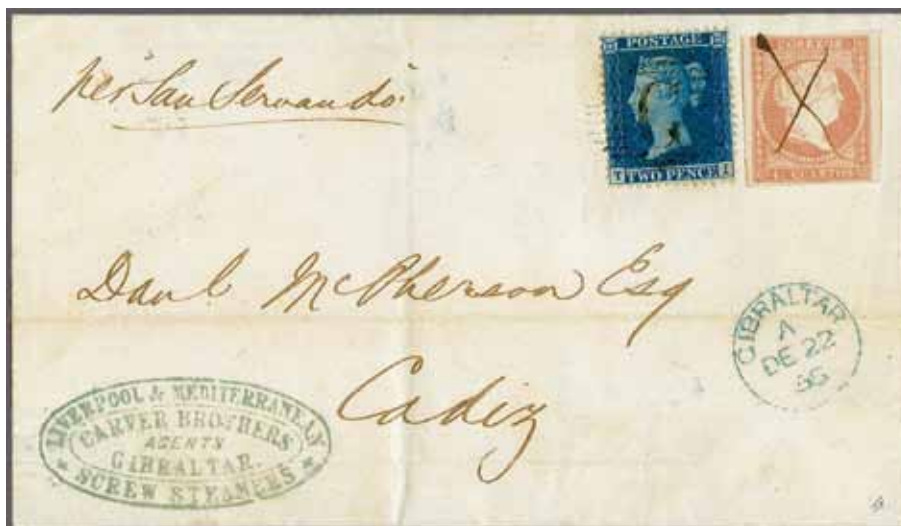 per "San Servando"
POSTAGE
TWO PENCE
CUARTOS
Danl McPherson Esq
Cadiz
GIBRALTAR
A
DE 22
56
LIVERPOOL & MEDITERRANEAN
CARVER BROTHERS
AGENTS
GIBRALTAR.
SCREW STEAMERS